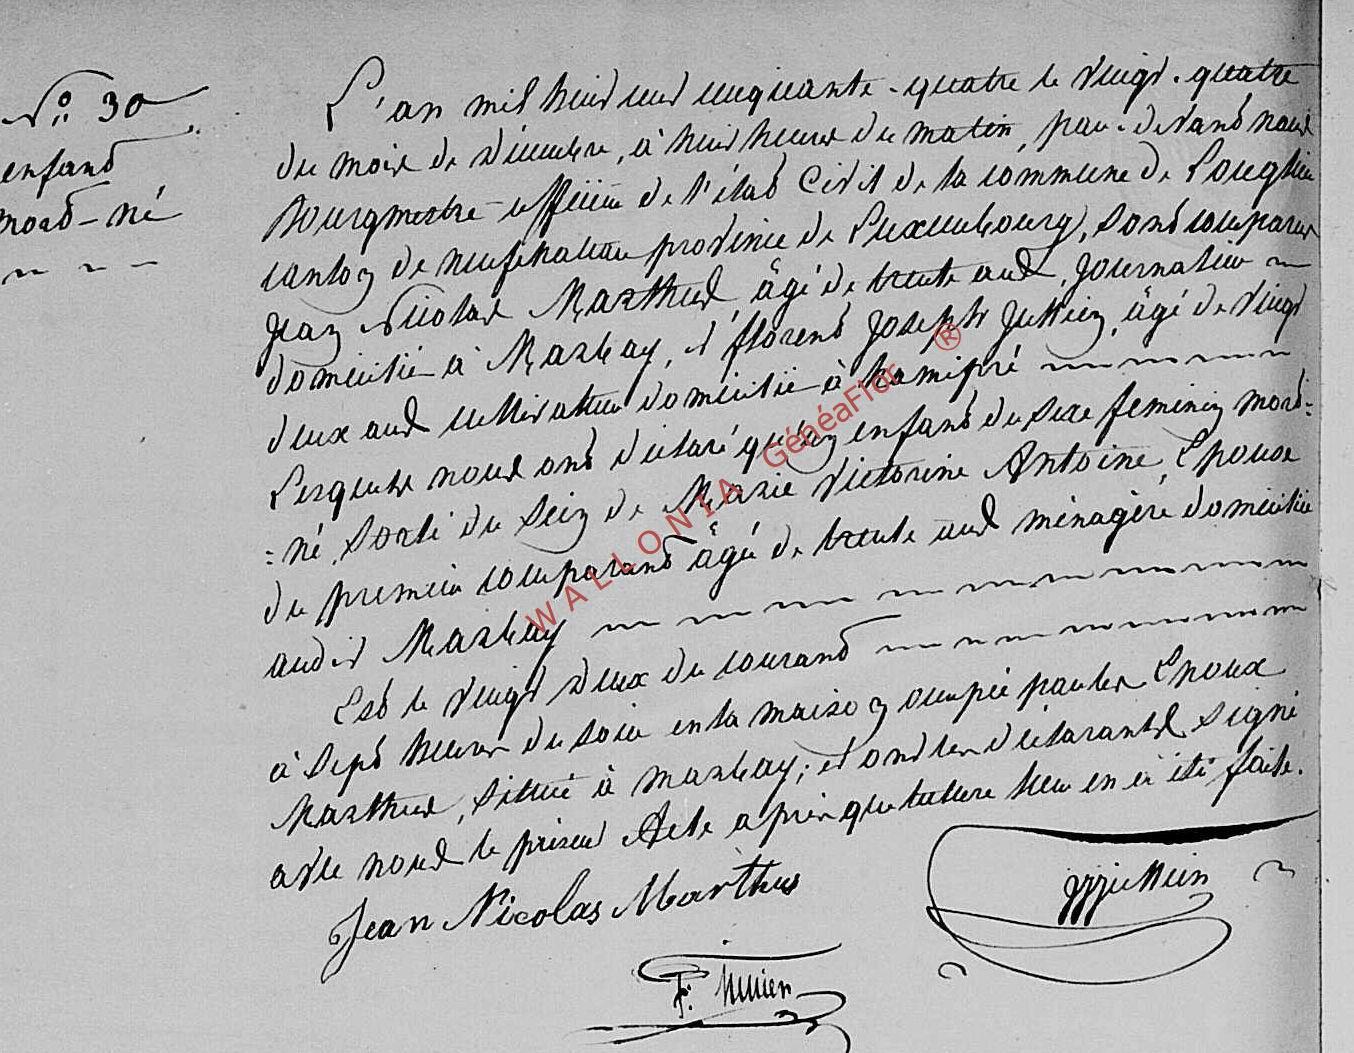 N° 30
enfant
mort-né
L'an mil huit cent cinquante-quatre le vingt-quatre
du mois de Décembre, à huit heures du matin, par-devant nous
Bourgmestre officier de l'état Civil de la commune de Longlier
canton de neufchateau province de Luxembourg, sont comparus
Jean Nicolas Marthus âgé de trente ans, journalier
domicilié à Marbay, et florent Joseph Jullien, âgé de vingt
deux ans cultivateur domicilié à hamipré
Lesquels nous ont déclaré qu'un enfant du sexe feminin mort-
=né, sorti du sein de Marie Victorine Antoine, Epouse
du premier comparant âgée de trente ans ménagère domiciliée
audit Marbay
Est le vingt deux du courant
à sept heures du soir en la maison occupée par les Epoux
Marthus, située à marbay; et ont les déclarants signé
avec nous le présent Acte après que lecture leur en a été faite.
Jean Nicolas Marthus
jjjullien
F. Jullien
WALLONIA GénéaFlor ®